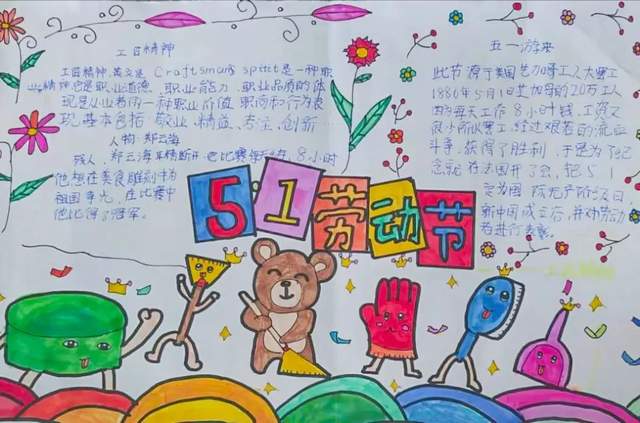 工匠精神
工匠精神,英文是 Craftsman's spirit 是一种职
业精神,它是职业道德、职业能力、职业品质的体
现是从业者的一种职业价值取向和行为表
现,基本包括敬业、精益、专注、创新
人物 郑云海
残人,郑云海 比赛每天 8小时
他想在美食雕刻中为
祖国争光,在比赛中
他比得了冠军。
51劳动节
五一游来
此节源于美国芝加哥工人大罢工
1886年5月1日芝加哥的20万工人
因为每天工作8小时钱,工资又
很少所以罢工,经过艰苦的流血
斗争,获得了胜利,于是为了纪
念就在法国开了会,把51
定为国际无产阶级日
新中国成立后,并对劳动
者进行表彰。